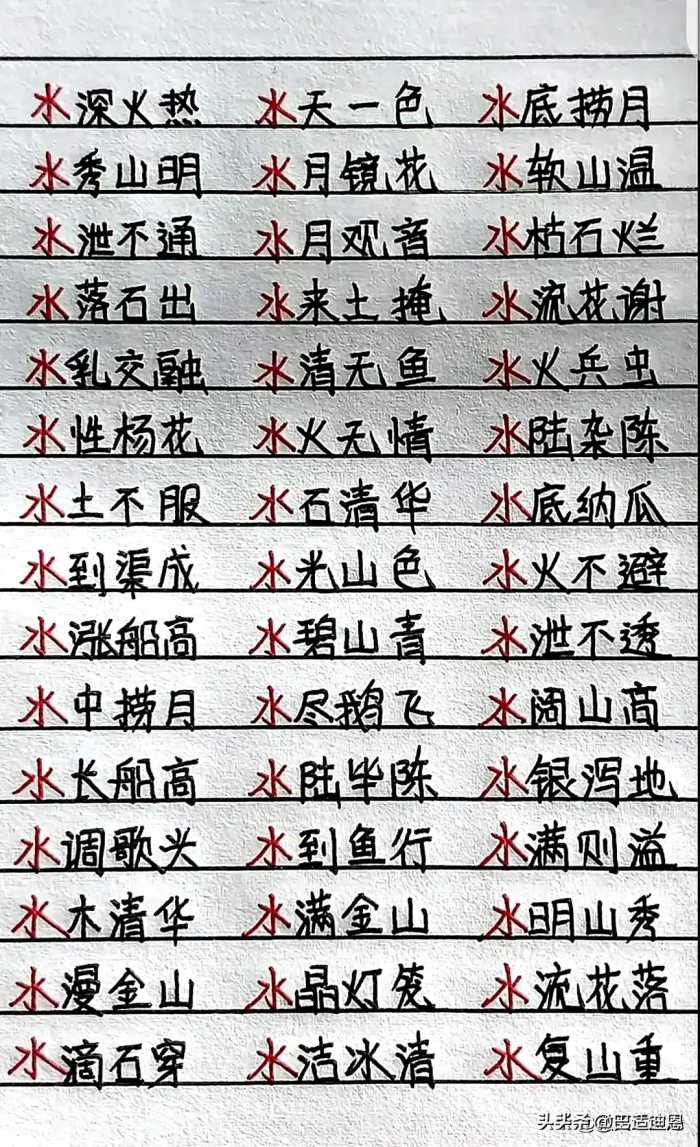 水深火热 水天一色 水底捞月
水秀山明 水月镜花 水软山温
水泄不通 水月观音 水枯石烂
水落石出 水来土掩 水流花谢
水乳交融 水清无鱼 水火兵虫
水性杨花 水火无情 水陆杂陈
水土不服 水石清华 水底纳瓜
水到渠成 水光山色 水火不避
水涨船高 水碧山青 水泄不透
水中捞月 水尽鹅飞 水阔山高
水长船高 水陆毕陈 水银泻地
水调歌头 水到鱼行 水满则溢
水木清华 水满金山 水明山秀
水漫金山 水晶灯笼 水流花落
水滴石穿 水洁冰清 水复山重
头条@田适迪恩